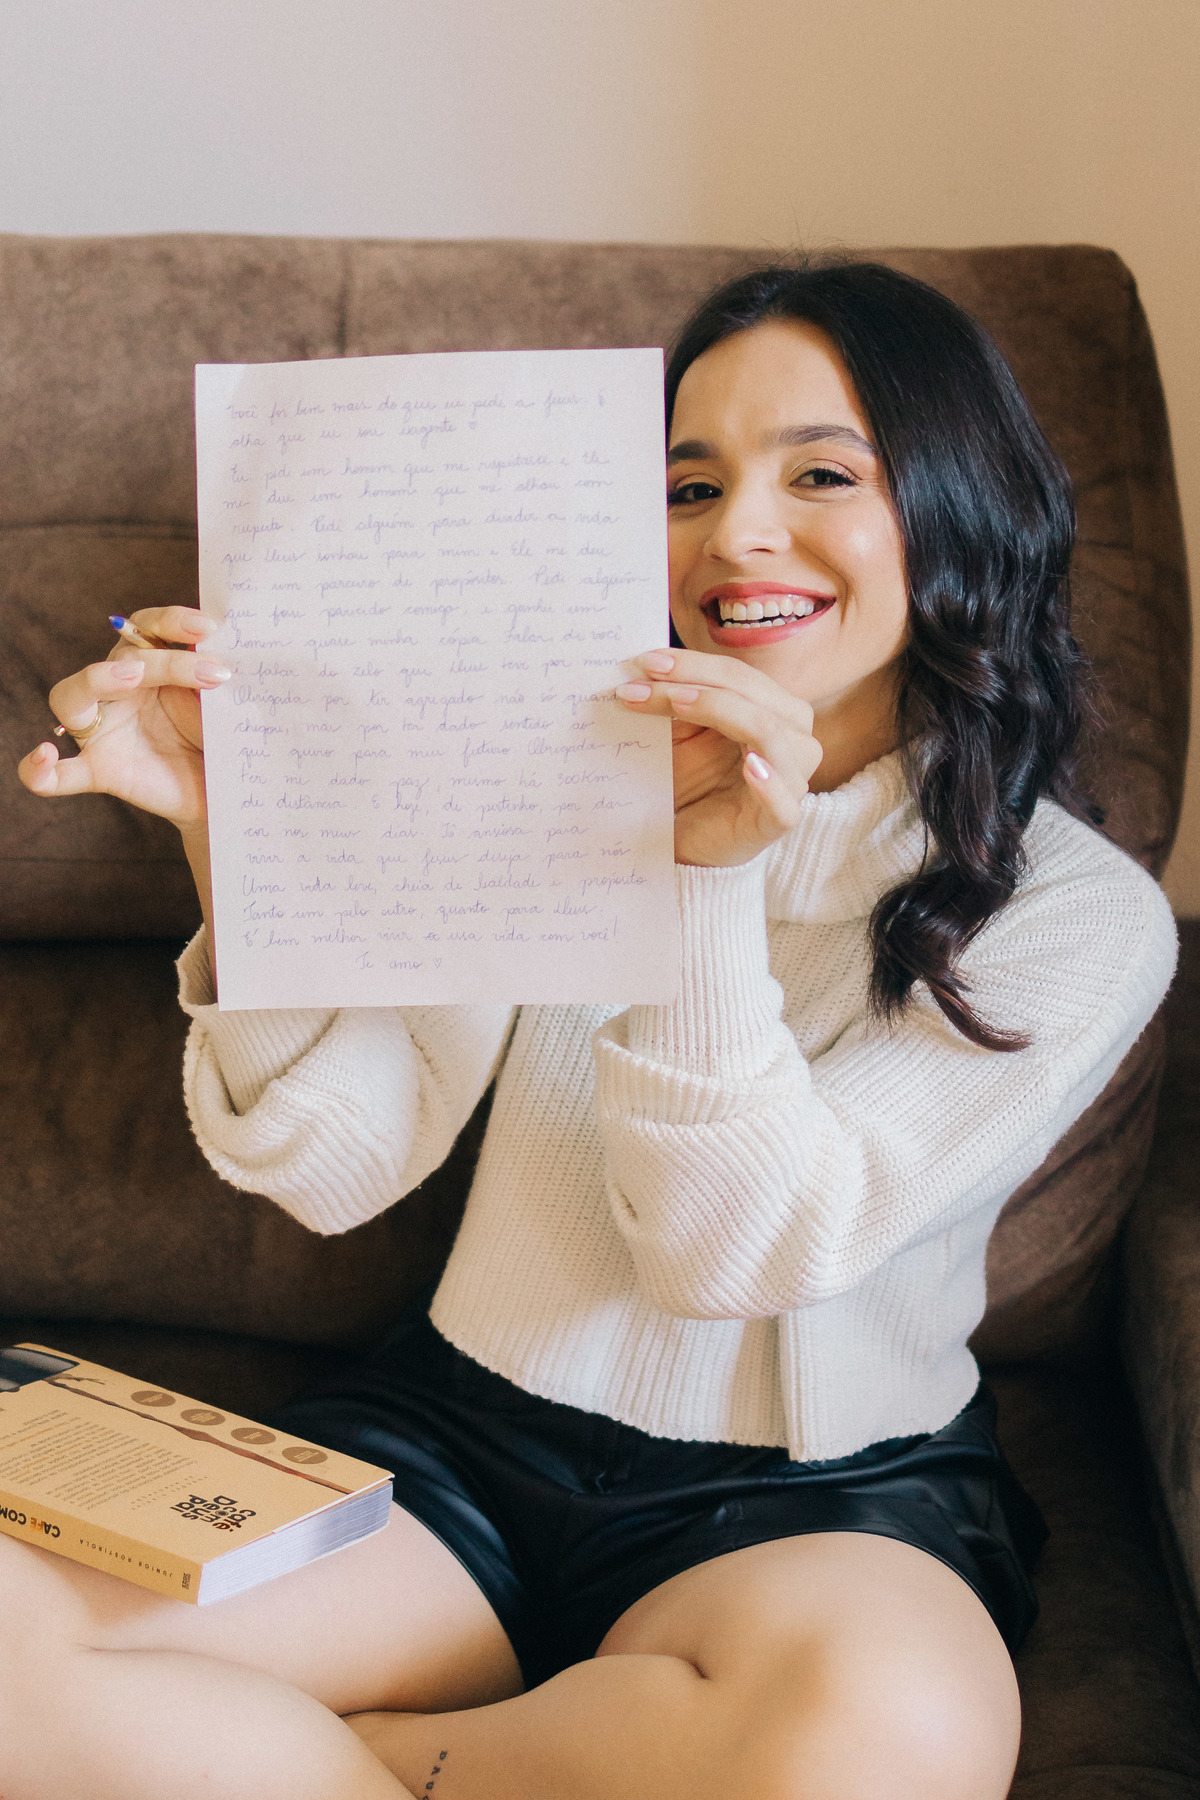 Você foi bem mais do que eu pedi a Jesus. E
olha que eu sou exigente ♡
Eu pedi um homem que me respeitasse e Ele
me deu um homem que me olhou com
respeito. Pedi alguém para dividir a vida
que Deus sonhou para mim e Ele me deu
você, um parceiro de propósitos. Pedi alguém
que fosse parecido comigo, e ganhei um
homem quase minha cópia. Falar de você
é falar do zelo que Deus teve por mim
Obrigada por ter agregado não só quando
chegou, mas por ter dado sentido ao
que quero para meu futuro. Obrigada por
ter me dado paz, mesmo há 300Km
de distância. E hoje, de pertinho, por dar
cor nos meus dias. Tô ansiosa para
viver a vida que Jesus deseja para nós
Uma vida leve, cheia de lealdade e propósito
Tanto um pelo outro, quanto para Deus.
É bem melhor viver essa vida com você!
Te amo ♡
café
com
Deus
Pai
CAFÉ COM
JUNIOR ROSTIROLA